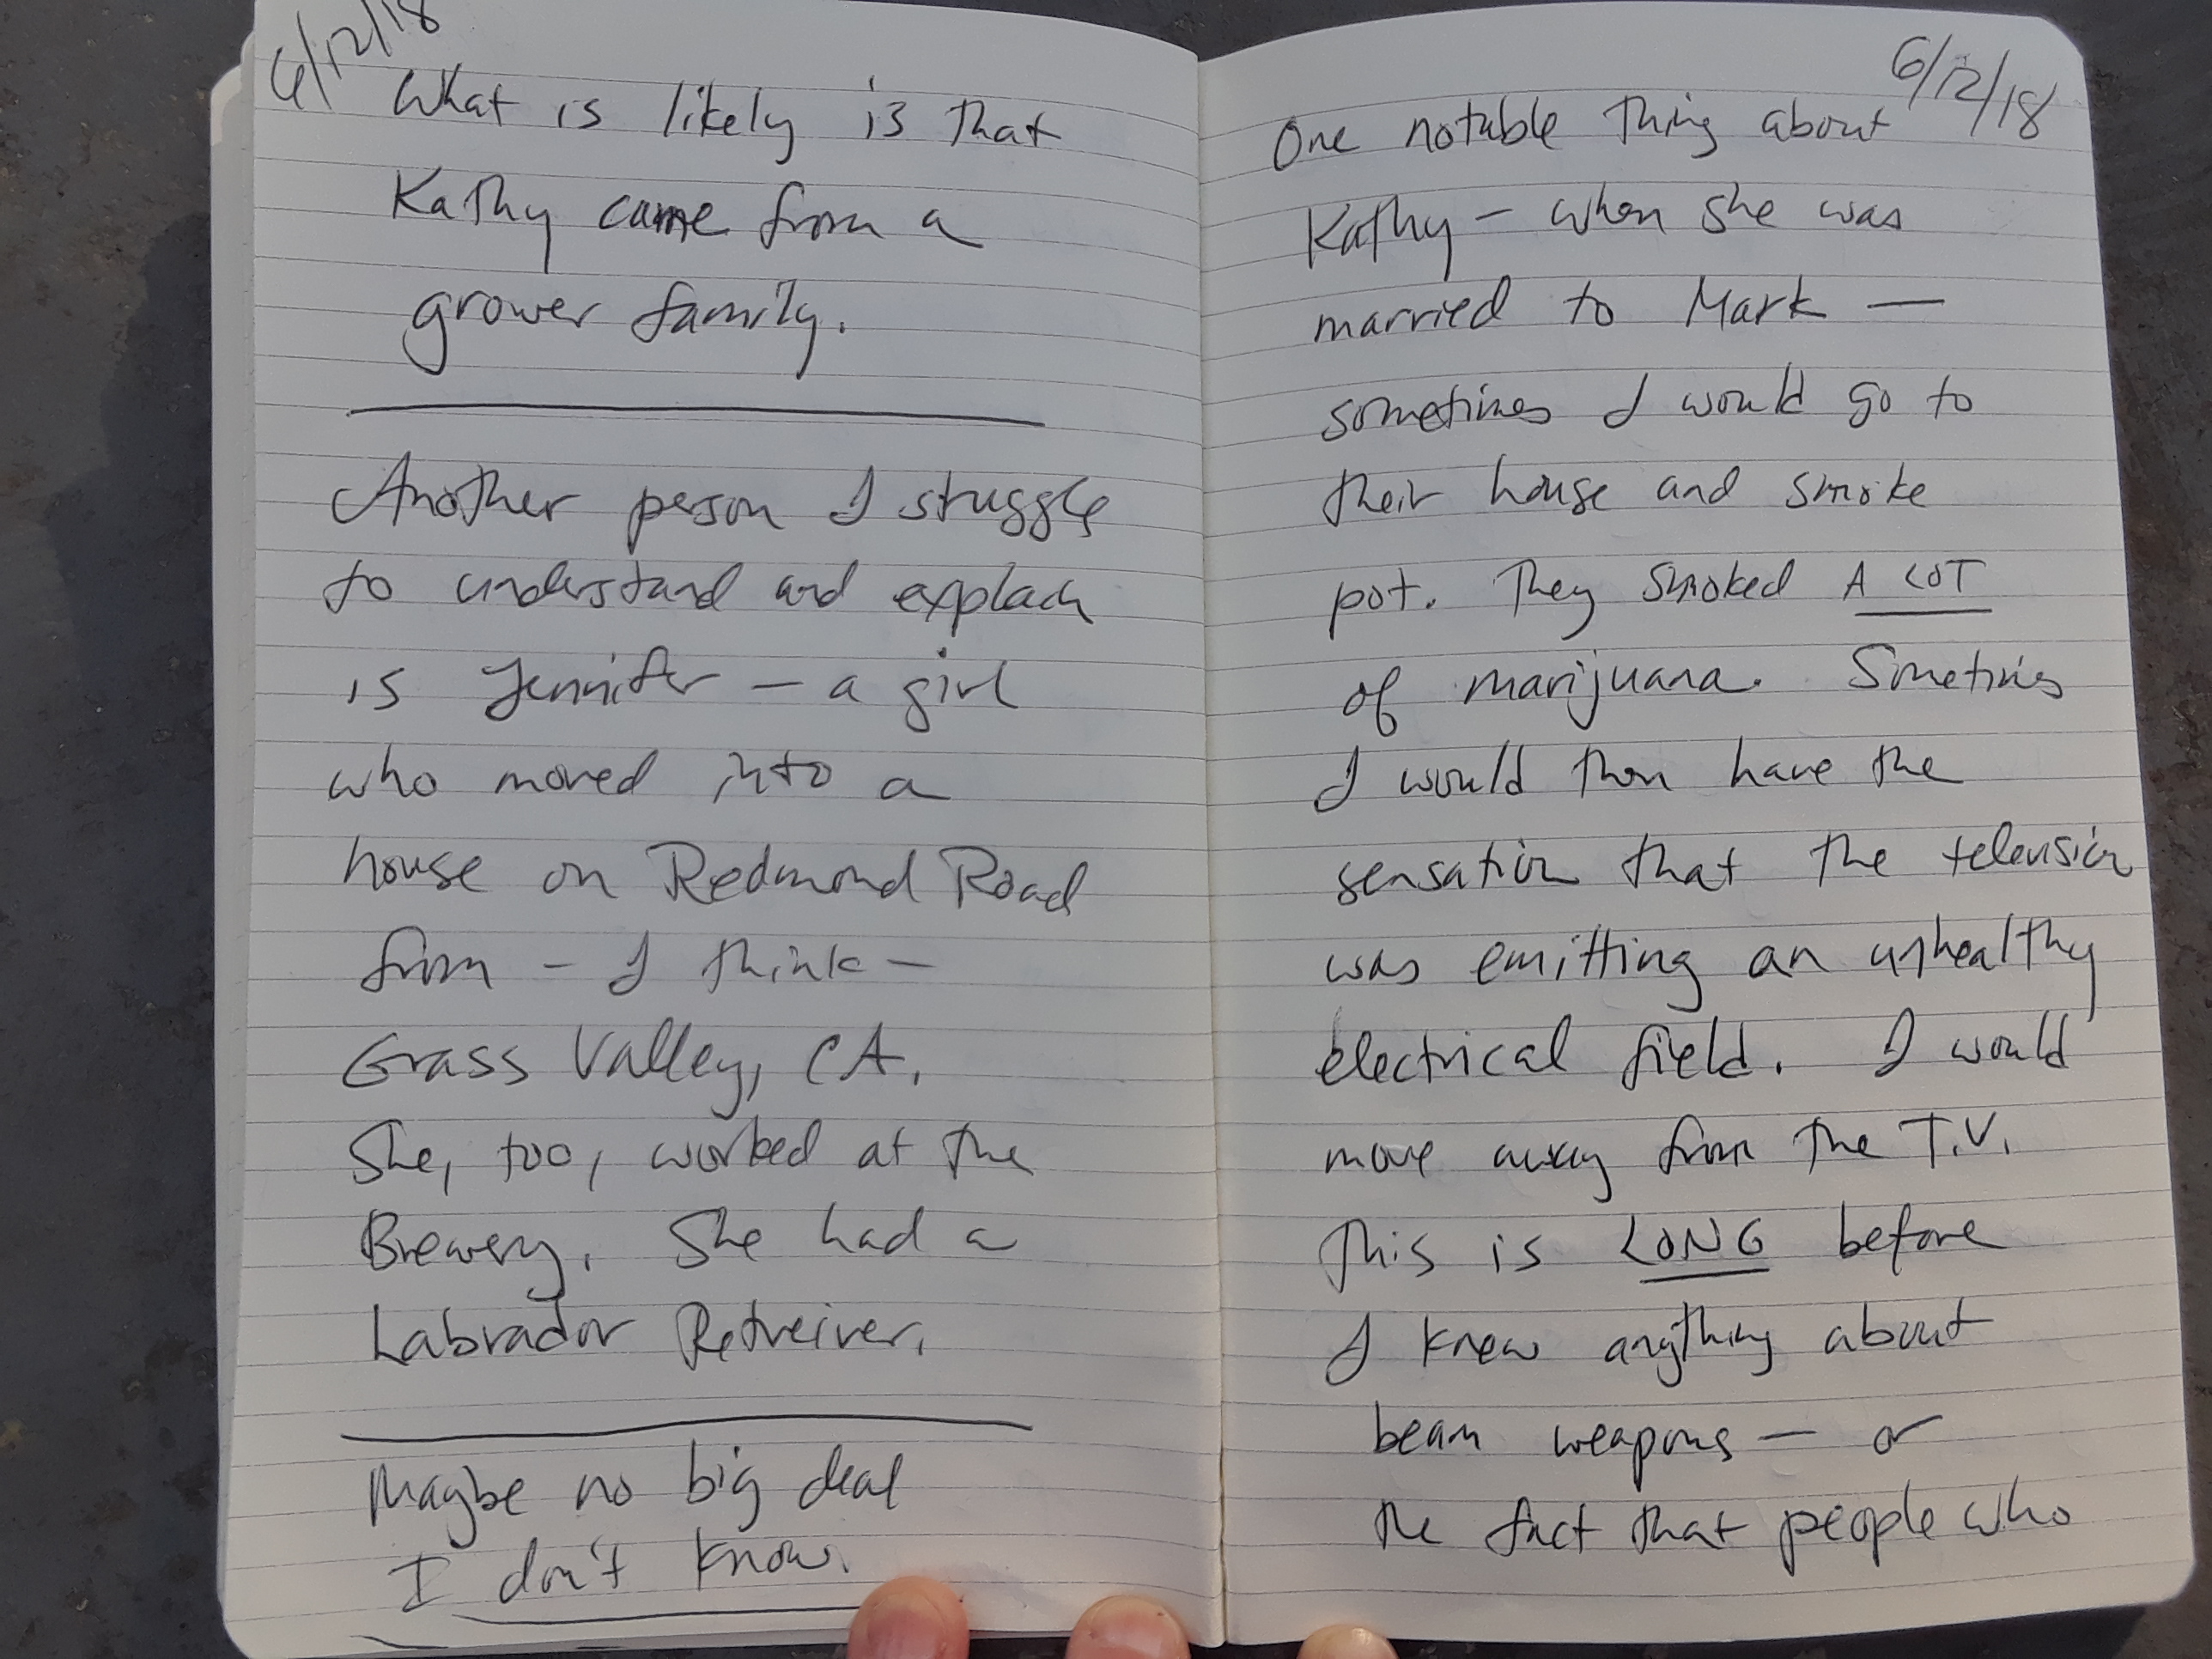 6/12/18
What is likely is that
Kathy came from a
grower family.
Another person I struggle
to understand and explain
is Jennifer - a girl
who moved into a
house on Redmond Road
from - I think -
Grass Valley, CA.
She, too, worked at the
Brewery. She had a
Labrador Retreiver.
Maybe no big deal
I don't know.
6/12/18
One notable thing about
Kathy - when she was
married to Mark -
sometimes I would go to
their house and smoke
pot. They smoked A LOT
of marijuana. Sometimes
I would then have the
sensation that the television
was emitting an unhealthy
electrical field. I would
move away from the T.V.
This is LONG before
I knew anything about
beam weapons - or
the fact that people who